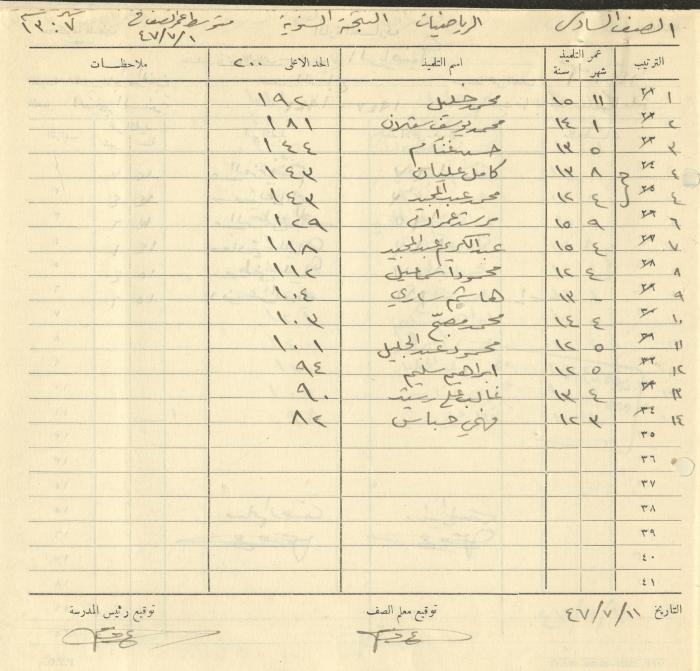 الصف السادس الرياضيات النتيجة السنوية متوسط عمر الصف في ٤٧/٧/١ سنة شهر ١٣،٧
الترتيب عمر التلميذ شهر سنة اسم التلميذ الحد الاعلى ٢٠٠ ملاحظات
١ ٢١ ١١ ١٥ محمد خليل ١٩٢
٢ ٢٢ ١ ١٤ محمد يوسف ١٨١
٣ ٢٣ ٥ ١٣ حسن غنام ١٤٤
٤ ٢٤ ٨ ١٣ كامل عليان ١٤٣
٤ ٢٥ ٤ ١٢ محمد عبد المجيد ١٤٣
٦ ٢٦ ٩ ١٥ مرشد عمران ١٢٩
٧ ٢٧ ٤ ١٥ عبد الكريم عبد المجيد ١١٨
٨ ٢٨ ٤ ١٢ محمود اسماعيل ١١٢
٩ ٢٩ - ١٣ هاشم ساري ١٠٤
١٠ ٣٠ ٤ ١٤ محمد مصبح ١٠٣
١١ ٣١ ٥ ١٢ محمود عبد الجليل ١٠١
١٢ ٣٢ ٥ ١٢ ابراهيم سليم ٩٤
١٣ ٣٣ ٤ ١٣ غالب علي رشيد ٩٠
١٤ ٣٤ ٣ ١٢ فهمي حباس ٨٢
٣٥
٣٦
٣٧
٣٨
٣٩
٤٠
٤١
التاريخ ٤٧/٧/١١ توقيع معلم الصف توقيع رئيس المدرسة